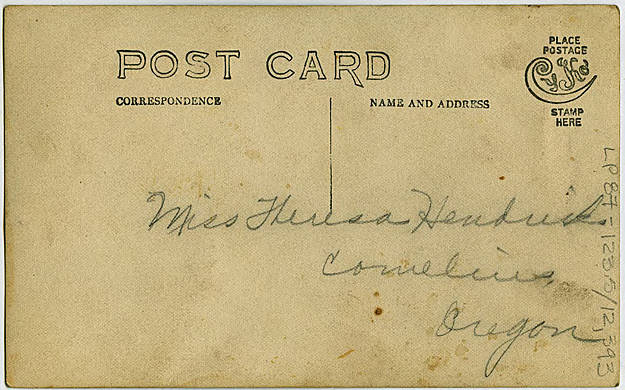 POST CARD
CORRESPONDENCE
NAME AND ADDRESS
PLACE
POSTAGE
CYKO
STAMP
HERE
Miss Theresa Hendricks
Cornelius,
Oregon
LP87-123.5/12,393